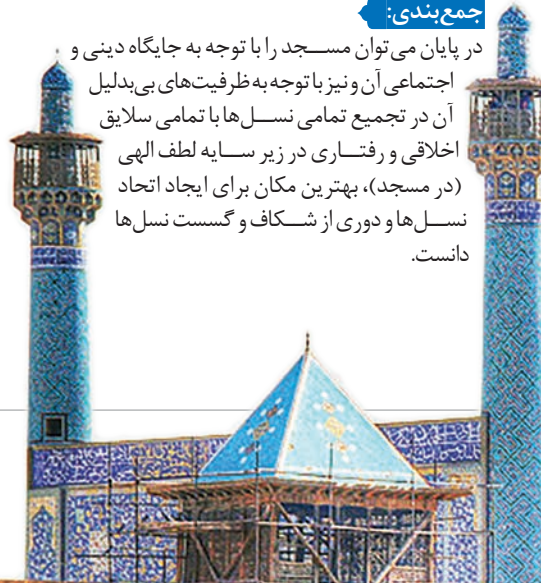 جمع‌بندی:
در پایان می‌توان مســـجد را با توجه به جایگاه دینی و
اجتماعی آن و نیز با توجه به ظرفیت‌های بی‌بدلیل
آن در تجمیع تمامی نســـل‌ها با تمامی سلایق
اخلاقی و رفتـــاری در زیر ســـایه لطف الهی
(در مسجد)، بهترین مکان برای ایجاد اتحاد
نســـل‌ها و دوری از شـــکاف و گسست نسل‌ها
دانست.